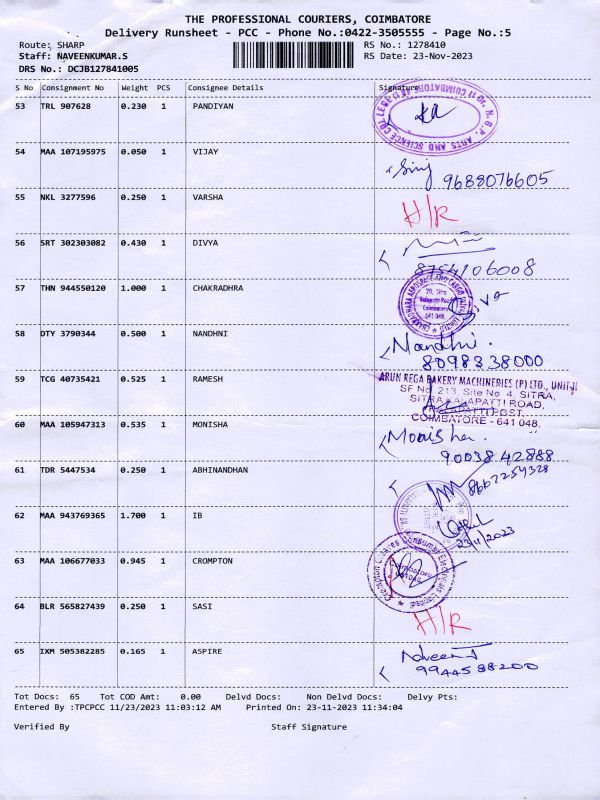 THE PROFESSIONAL COURIERS, COIMBATORE
Delivery Runsheet - PCC - Phone No.:0422-3505555 - Page No.:5
Route: SHARP RS No.: 1278410
Staff: NAVEENKUMAR.S RS Date: 23-Nov-2023
DRS No.: DCJB127841005
S No Consignment No Weight PCS Consignee Details Signature
53 TRL 907628 0.230 1 PANDIYAN
ARTS AND SCIENCE COLLEGE
54 MAA 107195975 0.050 1 VIJAY
9688076605
55 NKL 3277596 0.250 1 VARSHA H/R
56 SRT 302303082 0.430 1 DIVYA
8754106008
57 THN 944550120 1.000 1 CHAKRADHRA
Coimbatore
641 048
58 DTY 3790344 0.500 1 NANDHNI Nandhni.
8098338000
59 TCG 40735421 0.525 1 RAMESH ARUN REGA BAKERY MACHINERIES (P) LTD., UNIT-II
SF No. 213, Site No. 4, SITRA,
SITRA KALAPATTI ROAD,
KALAPATTI POST,
COIMBATORE - 641 048.
60 MAA 105947313 0.535 1 MONISHA Monisha.
90038 42888
61 TDR 5447534 0.250 1 ABHINANDHAN
8667254328
62 MAA 943769365 1.700 1 IB
23/11/2023
63 MAA 106677033 0.945 1 CROMPTON
Crompton Greaves Consumer Electricals Limited
Coimbatore
64 BLR 565827439 0.250 1 SASI H/R
65 IXM 505382285 0.165 1 ASPIRE Naveen J
9944588200
Tot Docs: 65 Tot COD Amt: 0.00 Delvd Docs: Non Delvd Docs: Delvy Pts:
Entered By :TPCPCC 11/23/2023 11:03:12 AM Printed On: 23-11-2023 11:34:04
Verified By Staff Signature